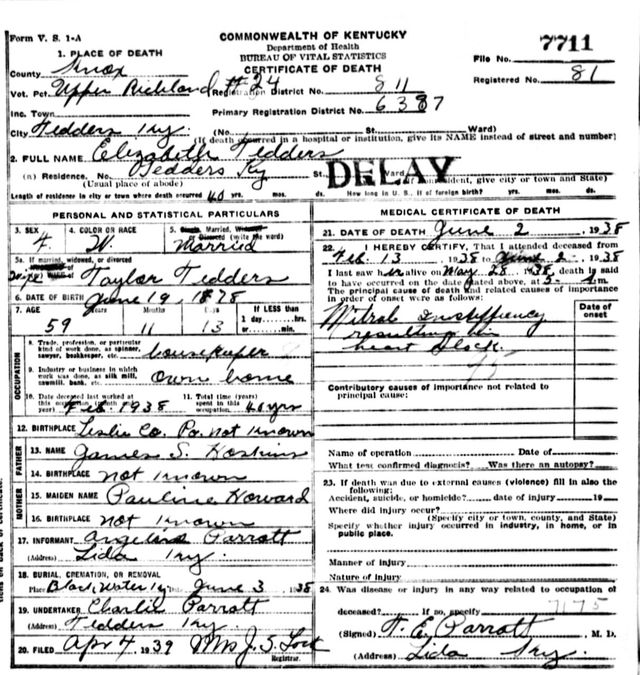 Form V. S. 1-A
COMMONWEALTH OF KENTUCKY
Department of Health
BUREAU OF VITAL STATISTICS
CERTIFICATE OF DEATH
7711
File No.
Registered No. 81
1. PLACE OF DEATH
County Knox
Vot. Pct. Upper Richland #24 Registration District No. 811
Inc. Town Primary Registration District No. 6387
City Tedders Ky. (No. St. Ward)
(If death occurred in a hospital or institution, give its NAME instead of street and number)
2. FULL NAME Elizabeth Tedders
(a) Residence. No. Tedders Ky St. Ward.
DELAY
(Usual place of abode) (If nonresident, give city or town and State)
Length of residence in city or town where death occurred 40 yrs. mos. ds. How long in U. S., if of foreign birth? yrs. mos. ds.
PERSONAL AND STATISTICAL PARTICULARS
3. SEX 4. COLOR OR RACE 5. Single, Married, Widowed, or Divorced (write the word)
F. W. Married
5a. If married, widowed, or divorced
Wife of Taylor Tedders
6. DATE OF BIRTH June 19, 1878
7. AGE Years Months Days If LESS than
59 11 13 1 day hrs.
or min.
OCCUPATION
8. Trade, profession, or particular
kind of work done, as spinner,
sawyer, bookkeeper, etc. housekeeper
9. Industry or business in which
work was done, as silk mill,
sawmill, bank, etc. own home
10. Date deceased last worked at
this occupation (month and
year) Feb. 1938
11. Total time (years)
spent in this
occupation 40 yrs
12. BIRTHPLACE Leslie Co. Po. not known
FATHER
13. NAME James S. Hoskins
14. BIRTHPLACE not known
MOTHER
15. MAIDEN NAME Pauline Howard
16. BIRTHPLACE not known
17. INFORMANT Parrott
(Address) Lida Ky.
18. BURIAL, CREMATION, OR REMOVAL
Place Black Water Ky Date June 3, 1938
19. UNDERTAKER Charlie Parrott
(Address) Tedders Ky.
20. FILED Apr 4 1939 Mrs J. S. Lock
Registrar.
MEDICAL CERTIFICATE OF DEATH
21. DATE OF DEATH June 2, 1938
22. I HEREBY CERTIFY, That I attended deceased from
Feb. 13, 1938 to June 2, 1938
I last saw her alive on May 28, 1938, death is said
to have occurred on the date stated above, at 5- m.
The principal cause of death and related causes of importance
in order of onset were as follows:
Date of
onset
Mitral Instiffiency
resulting in
heart block.
Contributory causes of importance not related to
principal cause:
Name of operation Date of
What test confirmed diagnosis? Was there an autopsy?
23. If death was due to external causes (violence) fill in also the
following:
Accident, suicide, or homicide? date of injury 19
Where did injury occur?
(Specify city or town, county, and State)
Specify whether injury occurred in industry, in home, or in
public place.
Manner of injury
Nature of injury
24. Was disease or injury in any way related to occupation of
deceased? If so, specify 7175
(Signed) T. E. Parrott, M. D.
(Address) Lida Ky.